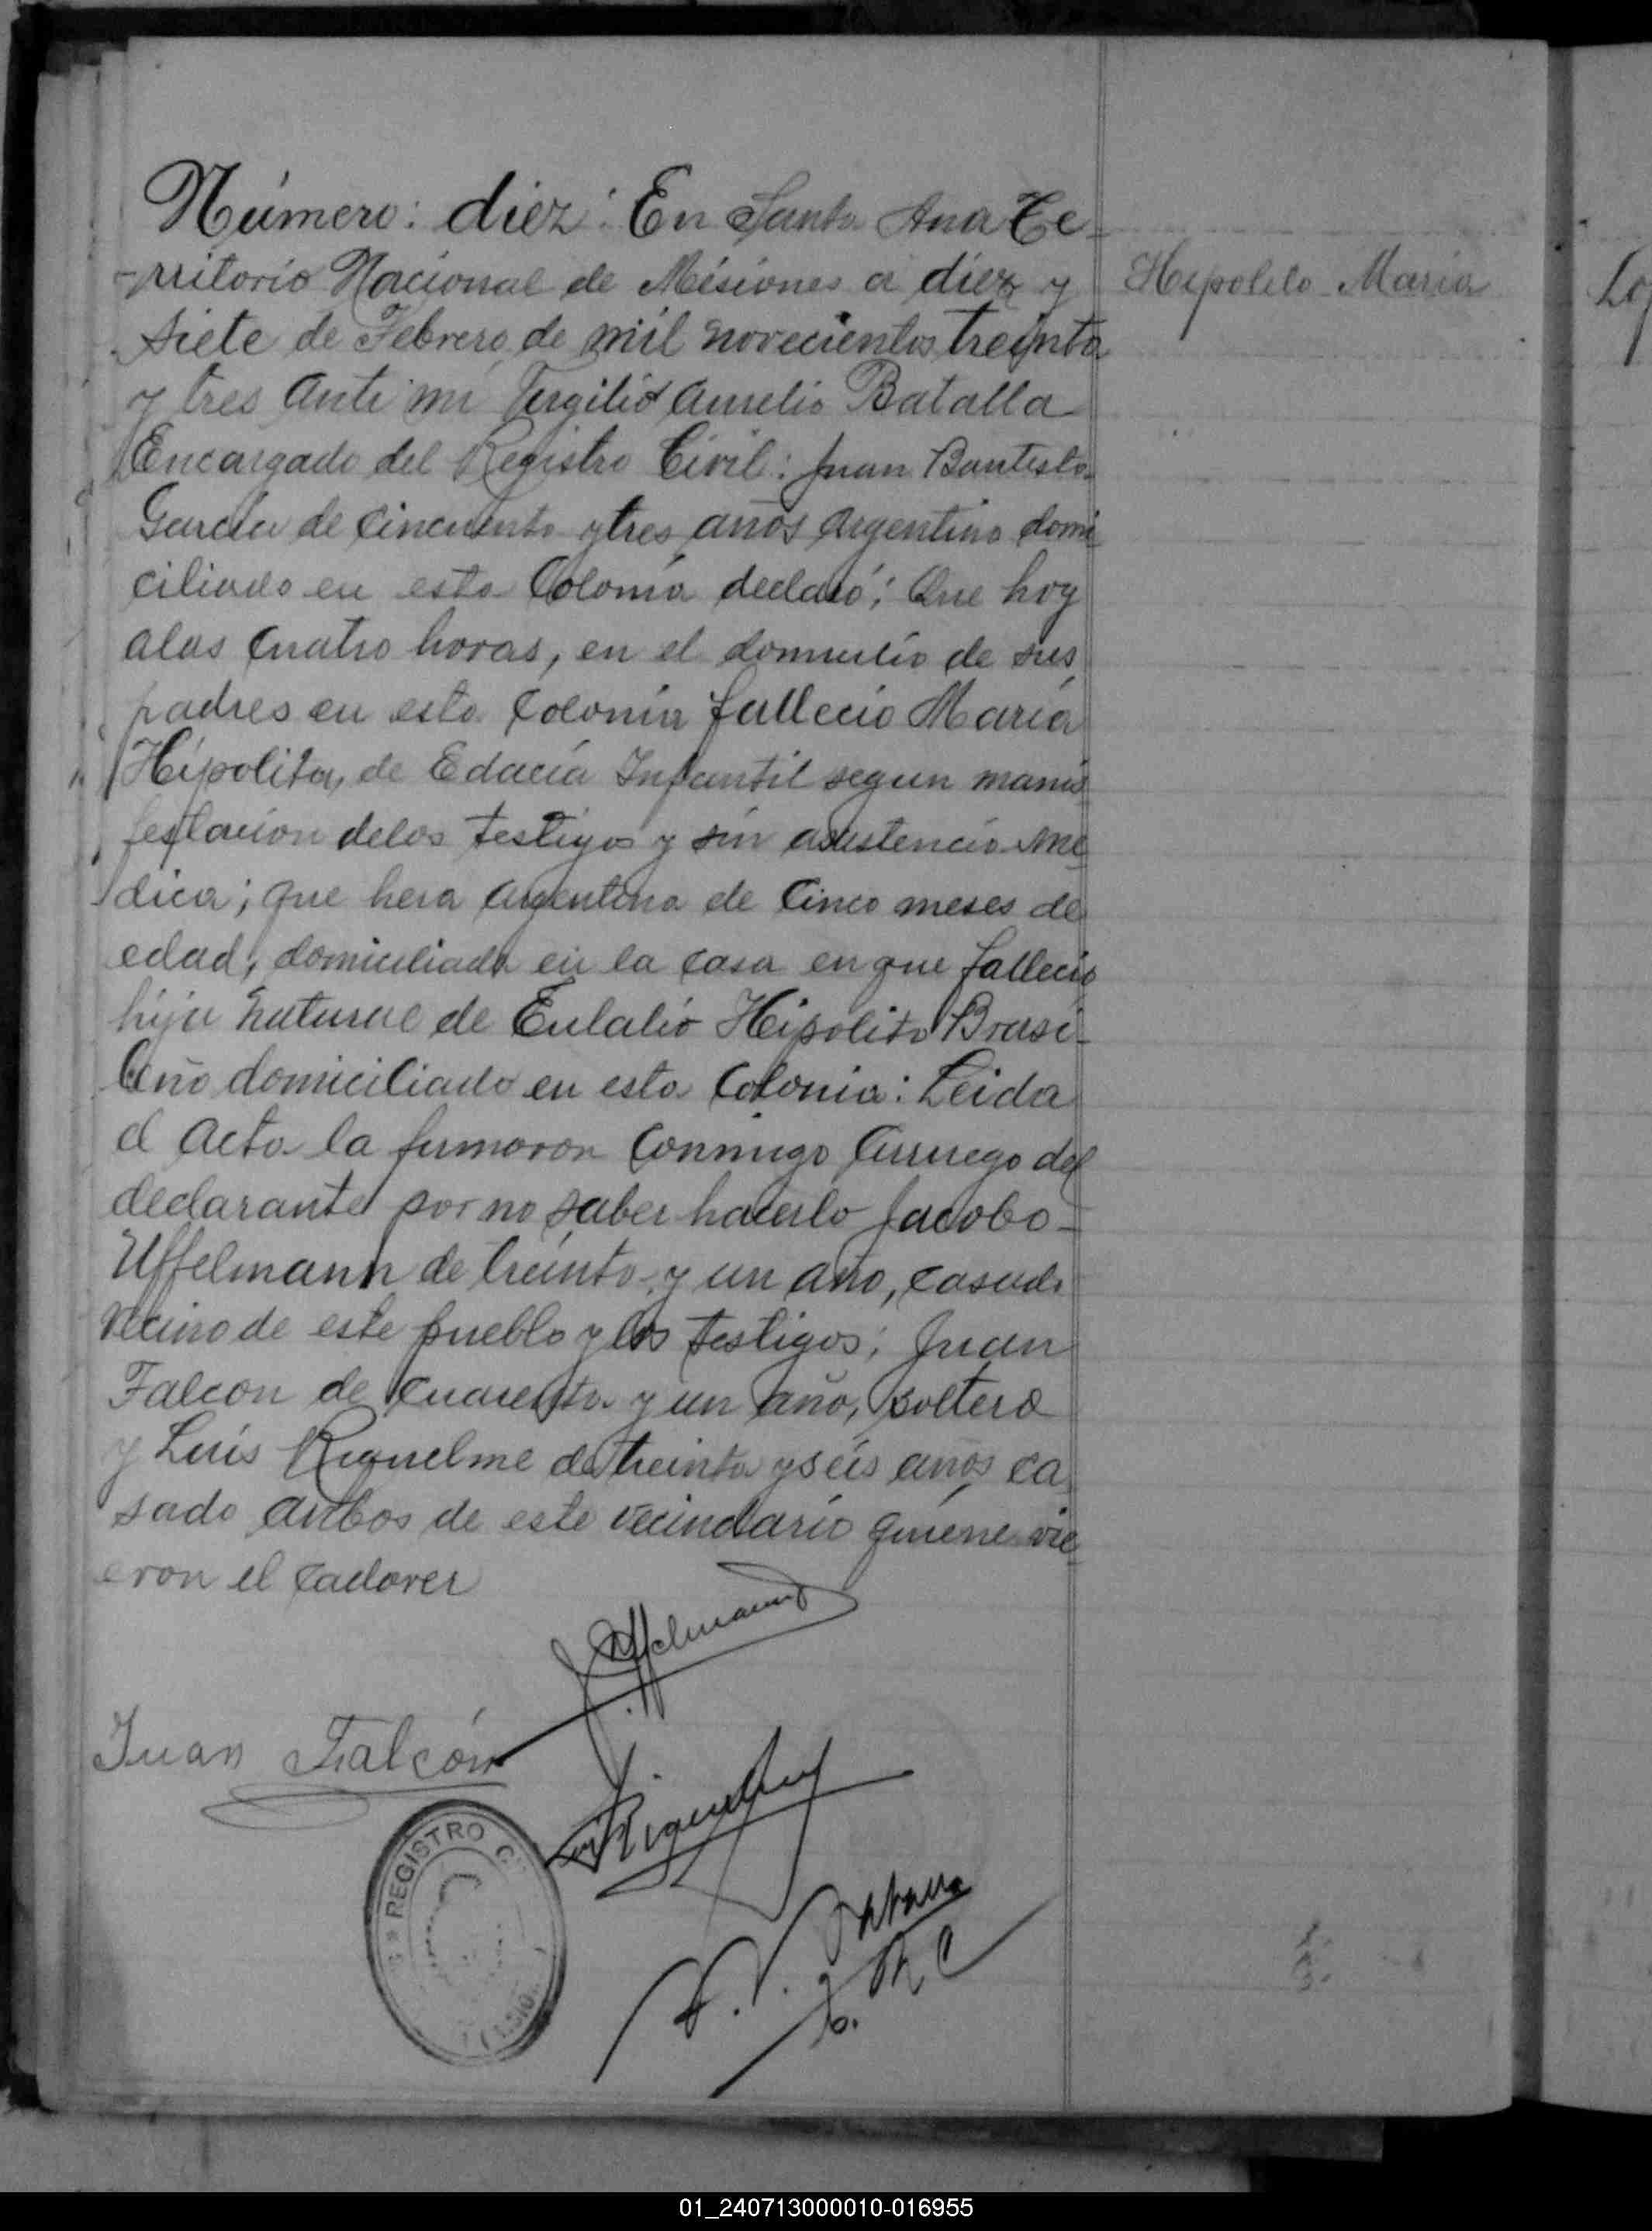 Número: diez: En Santa Ana Te-
-rritorio Nacional de Misiones a diez y
siete de Febrero de mil novecientos treinta
y tres ante mi Virgilio Aurelio Batalla
Encargado del Registro Civil: Juan Bautista
Garcia de cincuenta y tres años argentino domi
ciliado en esta Colonia declaró: Que hoy
alas cuatro horas, en el domicilio de sus
padres en esta Colonia fallecio Maria
Hipolita, de Edacia Infantil segun mani
festacion delos testigos y sin asistencia me
dica; que hera argentina de cinco meses de
edad, domiciliada en la casa en que fallecio
hija natural de Eulalio Hipolito Brasi-
leño domiciliado en esta Colonia: Leida
el acta la firmaron conmigo aruego del
declarante por no saber hacerlo Jacobo-
Uffelmann de treinta y un año, casado
vecino de este pueblo y los testigos; Juan
Falcon de cuarenta y un año, soltero
y Luis Riquelme de treinta y seis años ca
sado ambos de este vecindario quiene vie
eron el cadaver
Hipolito Maria
J. Uffelmann
Juan Falcón
Luis Riquelme
A. V. Batalla
E. R C
REGISTRO C
01_240713000010-016955